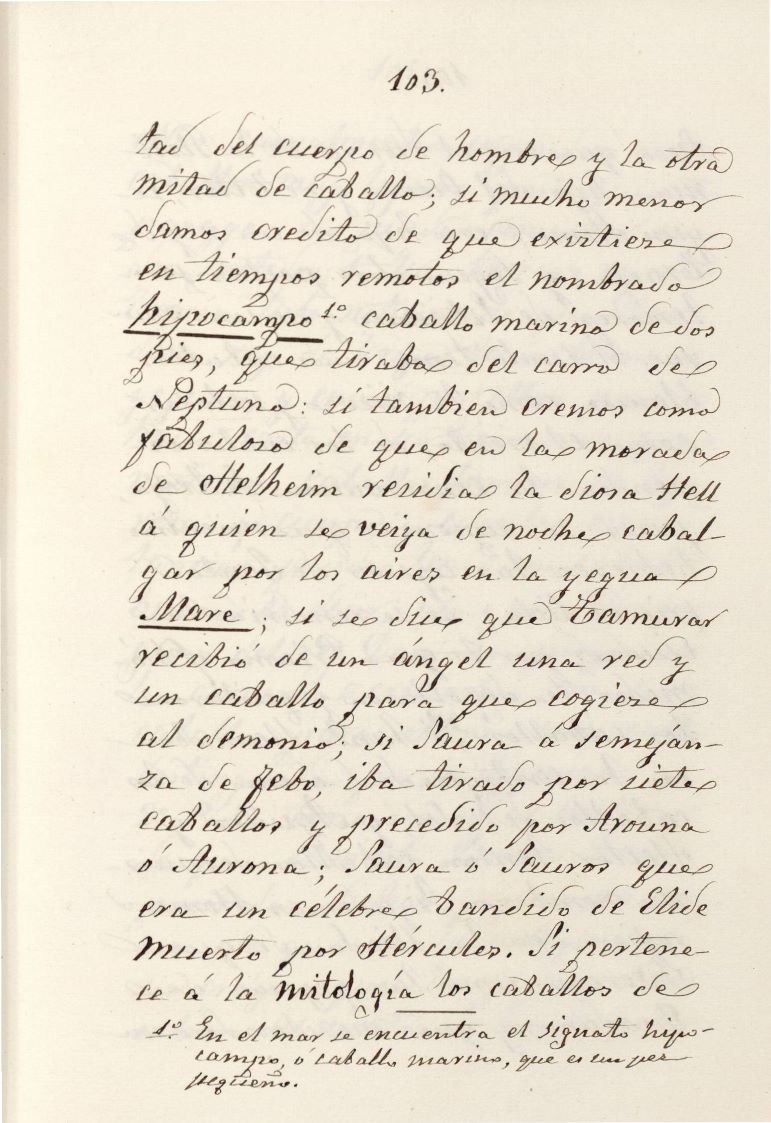 103.
tad del cuerpo de hombre y la otra
mitad de caballo; si mucho menor
damos credito de que existiese
en tiempos remotos el nombrado
hipocampo 1.º caballo marino de dos
pies, que tiraba del carro de
Neptuno: si tambien cremos como
fabuloso de que en la morada
de Helheim residia la diosa Hell
á quien se veiya de noche cabal-
gar por los aires en la yegua
Mare; si se dice que Tamurar
recibió de un ángel una red y
un caballo para que cogiese
al demonio; si Saura á semeján-
za de Febo, iba tirado por siete
caballos y precedido por Arouna
ó Aurona; Saura ó Sauros que
era un célebre bandido de Elide
muerto por Hércules. Si pertene-
ce á la mitología los caballos de
1.º En el mar se encuentra el signato hipo-
campo, ó caballo marino, que es un pez
pequeño.